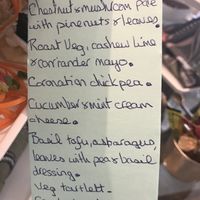 Chestnut & mushroom pate
with pinenuts & leaves.
Roast Veg, cashew lime
& corriander mayo.
Coronation chickpea.
Cucumber & mint cream
cheese.
Basil tofu, asparagus,
leaves with pea & basil
dressing.
Veg tartlett.